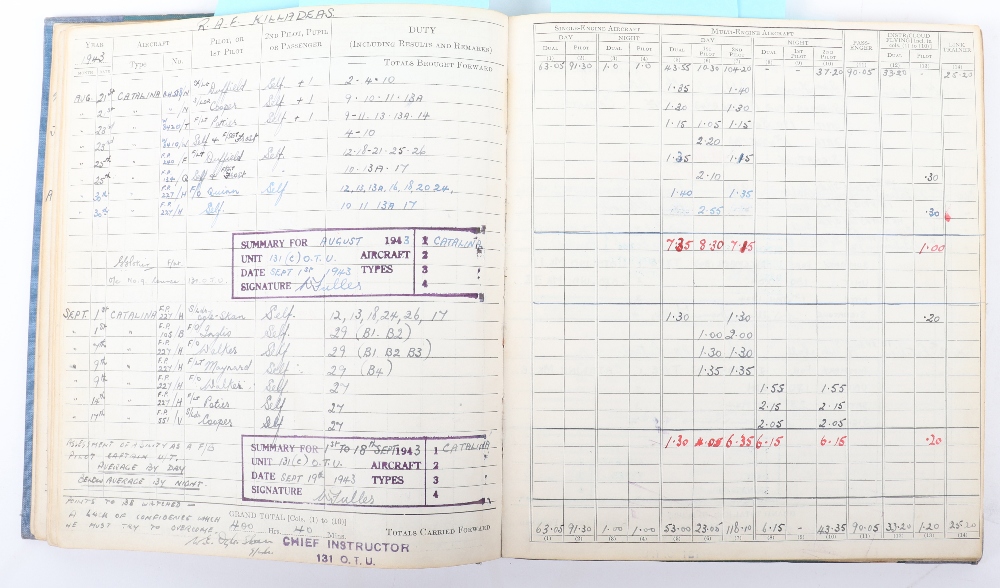 R.A.F. KILLADEAS.
YEAR 1943 AIRCRAFT PILOT, OR 1ST PILOT 2ND PILOT, PUPIL OR PASSENGER DUTY (INCLUDING RESULTS AND REMARKS)
MONTH DATE Type No.
TOTALS BROUGHT FORWARD
SINGLE-ENGINE AIRCRAFT MULTI-ENGINE AIRCRAFT PASSENGER INSTR/CLOUD FLYING [Incl. in cols. (1) to (10)] LINK TRAINER
DAY NIGHT DAY NIGHT
DUAL PILOT DUAL PILOT DUAL 1ST PILOT 2ND PILOT DUAL 1ST PILOT 2ND PILOT DUAL PILOT
(1) (2) (3) (4) (5) (6) (7) (8) (9) (10) (11) (12) (13) (14)
63.05 91.30 1.0 1.0 43.55 10.30 104.20 - - 37.20 90.05 33.20 - 25.20
AUG. 21st CATALINA Duffield Self + 1 2-4-10 1.35 1.40
" " Cooper Self + 1 9-10-11-13A 1.30 1.30
" 23rd " F/Lt Potier Self + 1 9-11-13-13A-14 1.15 1.05 1.15
" 23rd " Self + Frost 4-10 2.20
" 25th " F/Lt Duffield Self 12-18-21-25-26 1.35 1.15
" 25th " Self + Frost 10-13A-17 2.10 .30
" 30th " F.P. 227/H F/O Quinn Self 12,13,13A,16,18,20,24, 1.40 1.35
" 30th " F.P. 227/H Self 10 11 13A 17 2.55 .30
SUMMARY FOR AUGUST 1943 1 CATALINA
UNIT 131 (C) O.T.U. AIRCRAFT 2
DATE SEPT 1ST 1943 TYPES 3
SIGNATURE 4
7.35 8.30 7.15 1.00
SEPT. 1st CATALINA F.P. 227/H Self. 12, 13, 18, 24, 26, 17 1.30 1.30 .20
" 1st " F.P. 105/B F/O Inglis Self 29 (B1. B2) 1.00 2.00
" 7th " F.P. 227/H F/O Walker Self 29 (B1 B2 B3) 1.30 1.30
" 9th " F.P. 227/H F/Lt Maynard Self. 29 (B4) 1.35 1.35
" 9th " F.P. 227/H F/O Walker Self 27 1.55 1.55
" 14th " F.P. 227/H F/Lt Potier Self 27 2.15 2.15
" 17th " F.P. S/Ldr Cooper Self 27 2.05 2.05
SUMMARY FOR 1ST TO 18TH SEPT 1943 1 CATALINA
UNIT 131 (C) O.T.U. AIRCRAFT 2
DATE SEPT 19TH 1943 TYPES 3
SIGNATURE 4
1.30 4.05 6.35 6.15 6.15 .20
ASSESSMENT OF ABILITY AS A F/B
PILOT CAPTAIN U.T.
AVERAGE BY DAY
BELOW AVERAGE BY NIGHT.
POINTS TO BE WATCHED –
A LACK OF CONFIDENCE WHICH
HE MUST TRY TO OVERCOME
GRAND TOTAL [Cols. (1) to (10)]
400 Hrs. 40 Mins.
TOTALS CARRIED FORWARD
63.05 91.30 1.00 1.00 53.00 23.05 118.10 6.15 - 43.35 90.05 33.20 1.20 25.20
(1) (2) (3) (4) (5) (6) (7) (8) (9) (10) (11) (12) (13) (14)
CHIEF INSTRUCTOR
131 O.T.U.